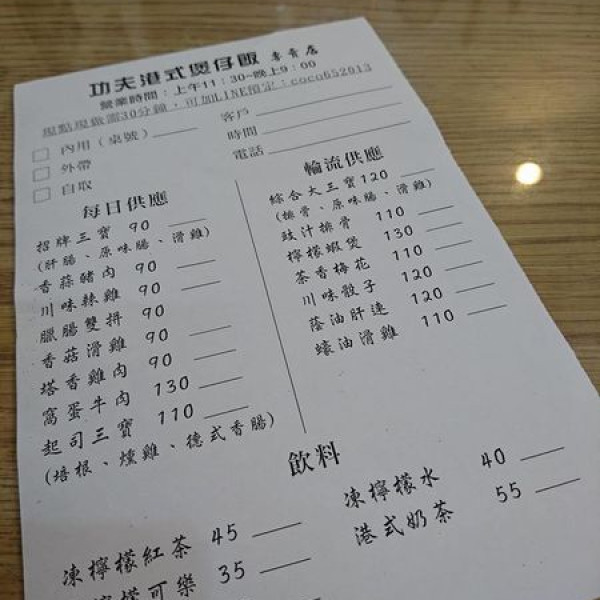 功夫港式煲仔飯 專賣店
營業時間：上午11：30~晚上9：00
現點現做需30分鐘，可加LINE預定：coco652013
內用（桌號）
外帶
自取
客戶
時間
電話
每日供應
招牌三寶 90
(肝腸、原味腸、滑雞)
香蒜豬肉 90
川味辣雞 90
臘腸雙拼 90
香菇滑雞 90
塔香雞肉 90
窩蛋牛肉 130
起司三寶 110
(培根、燻雞、德式香腸)
輪流供應
綜合大三寶120
(排骨、原味腸、滑雞)
豉汁排骨 110
檸檬蝦煲 130
茶香梅花 110
川味骰子 120
蔭油肝連 120
蠔油滑雞 110
飲料
凍檸檬紅茶 45
檸檬可樂 35
凍檸檬水 40
港式奶茶 55